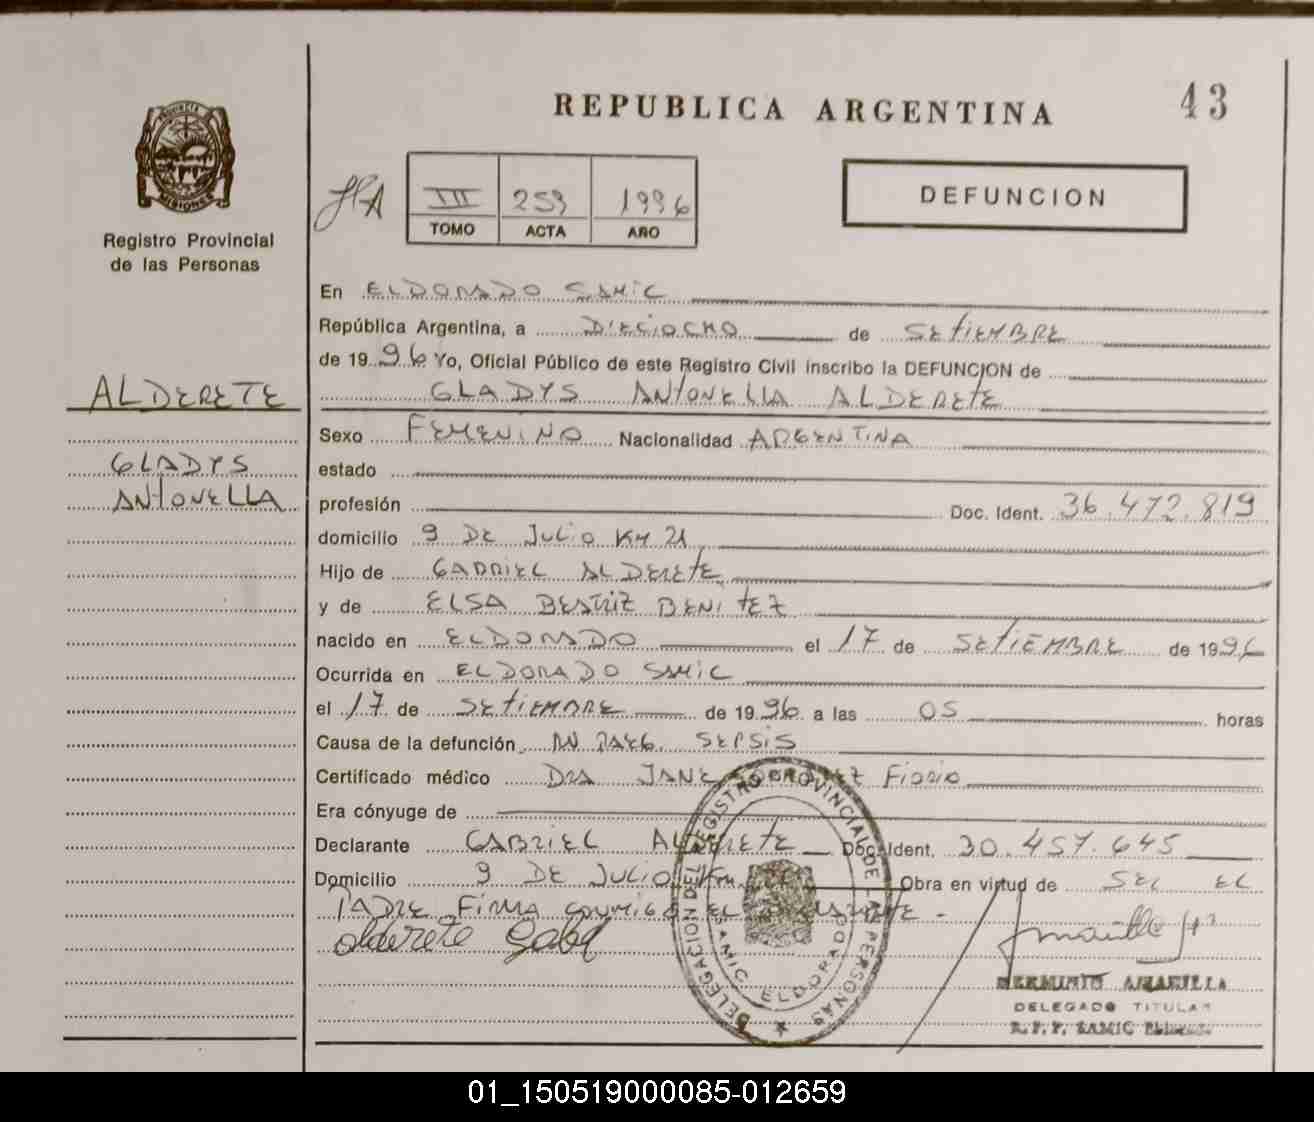 REPUBLICA ARGENTINA
43
PROVINCIA
MISIONES
Registro Provincial
de las Personas
III 259 1996
TOMO ACTA AÑO
DEFUNCION
ALDERETE
GLADYS
ANTONELLA
En ELDORADO SAMIC
República Argentina, a DIECIOCHO de SETIEMBRE
de 1996 Yo, Oficial Público de este Registro Civil inscribo la DEFUNCION de
GLADYS ANTONELLA ALDERETE
Sexo FEMENINO Nacionalidad ARGENTINA
estado
profesión Doc. Ident. 36.472.819
domicilio 9 DE JULIO KM 21
Hijo de GABRIEL ALDERETE
y de ELSA BEATRIZ BENITEZ
nacido en ELDORADO el 17 de SETIEMBRE de 1996
Ocurrida en ELDORADO SAMIC
el 17 de SETIEMBRE de 1996 a las 05 horas
Causa de la defunción SEPSIS
Certificado médico DRA JANE
Era cónyuge de
Declarante GABRIEL ALDERETE Doc. Ident. 30.457.645
Domicilio 9 DE JULIO Km. Obra en virtud de SER EL
PADRE FIRMA CONMIGO EL
alderete Gabriel
DELEGACION DEL REGISTRO PROVINCIAL DE LAS PERSONAS
SAMIC ELDORADO
HERMINIO AMARILLA
DELEGADO TITULAR
R. P. P. SAMIC Eldorado
01_150519000085-012659